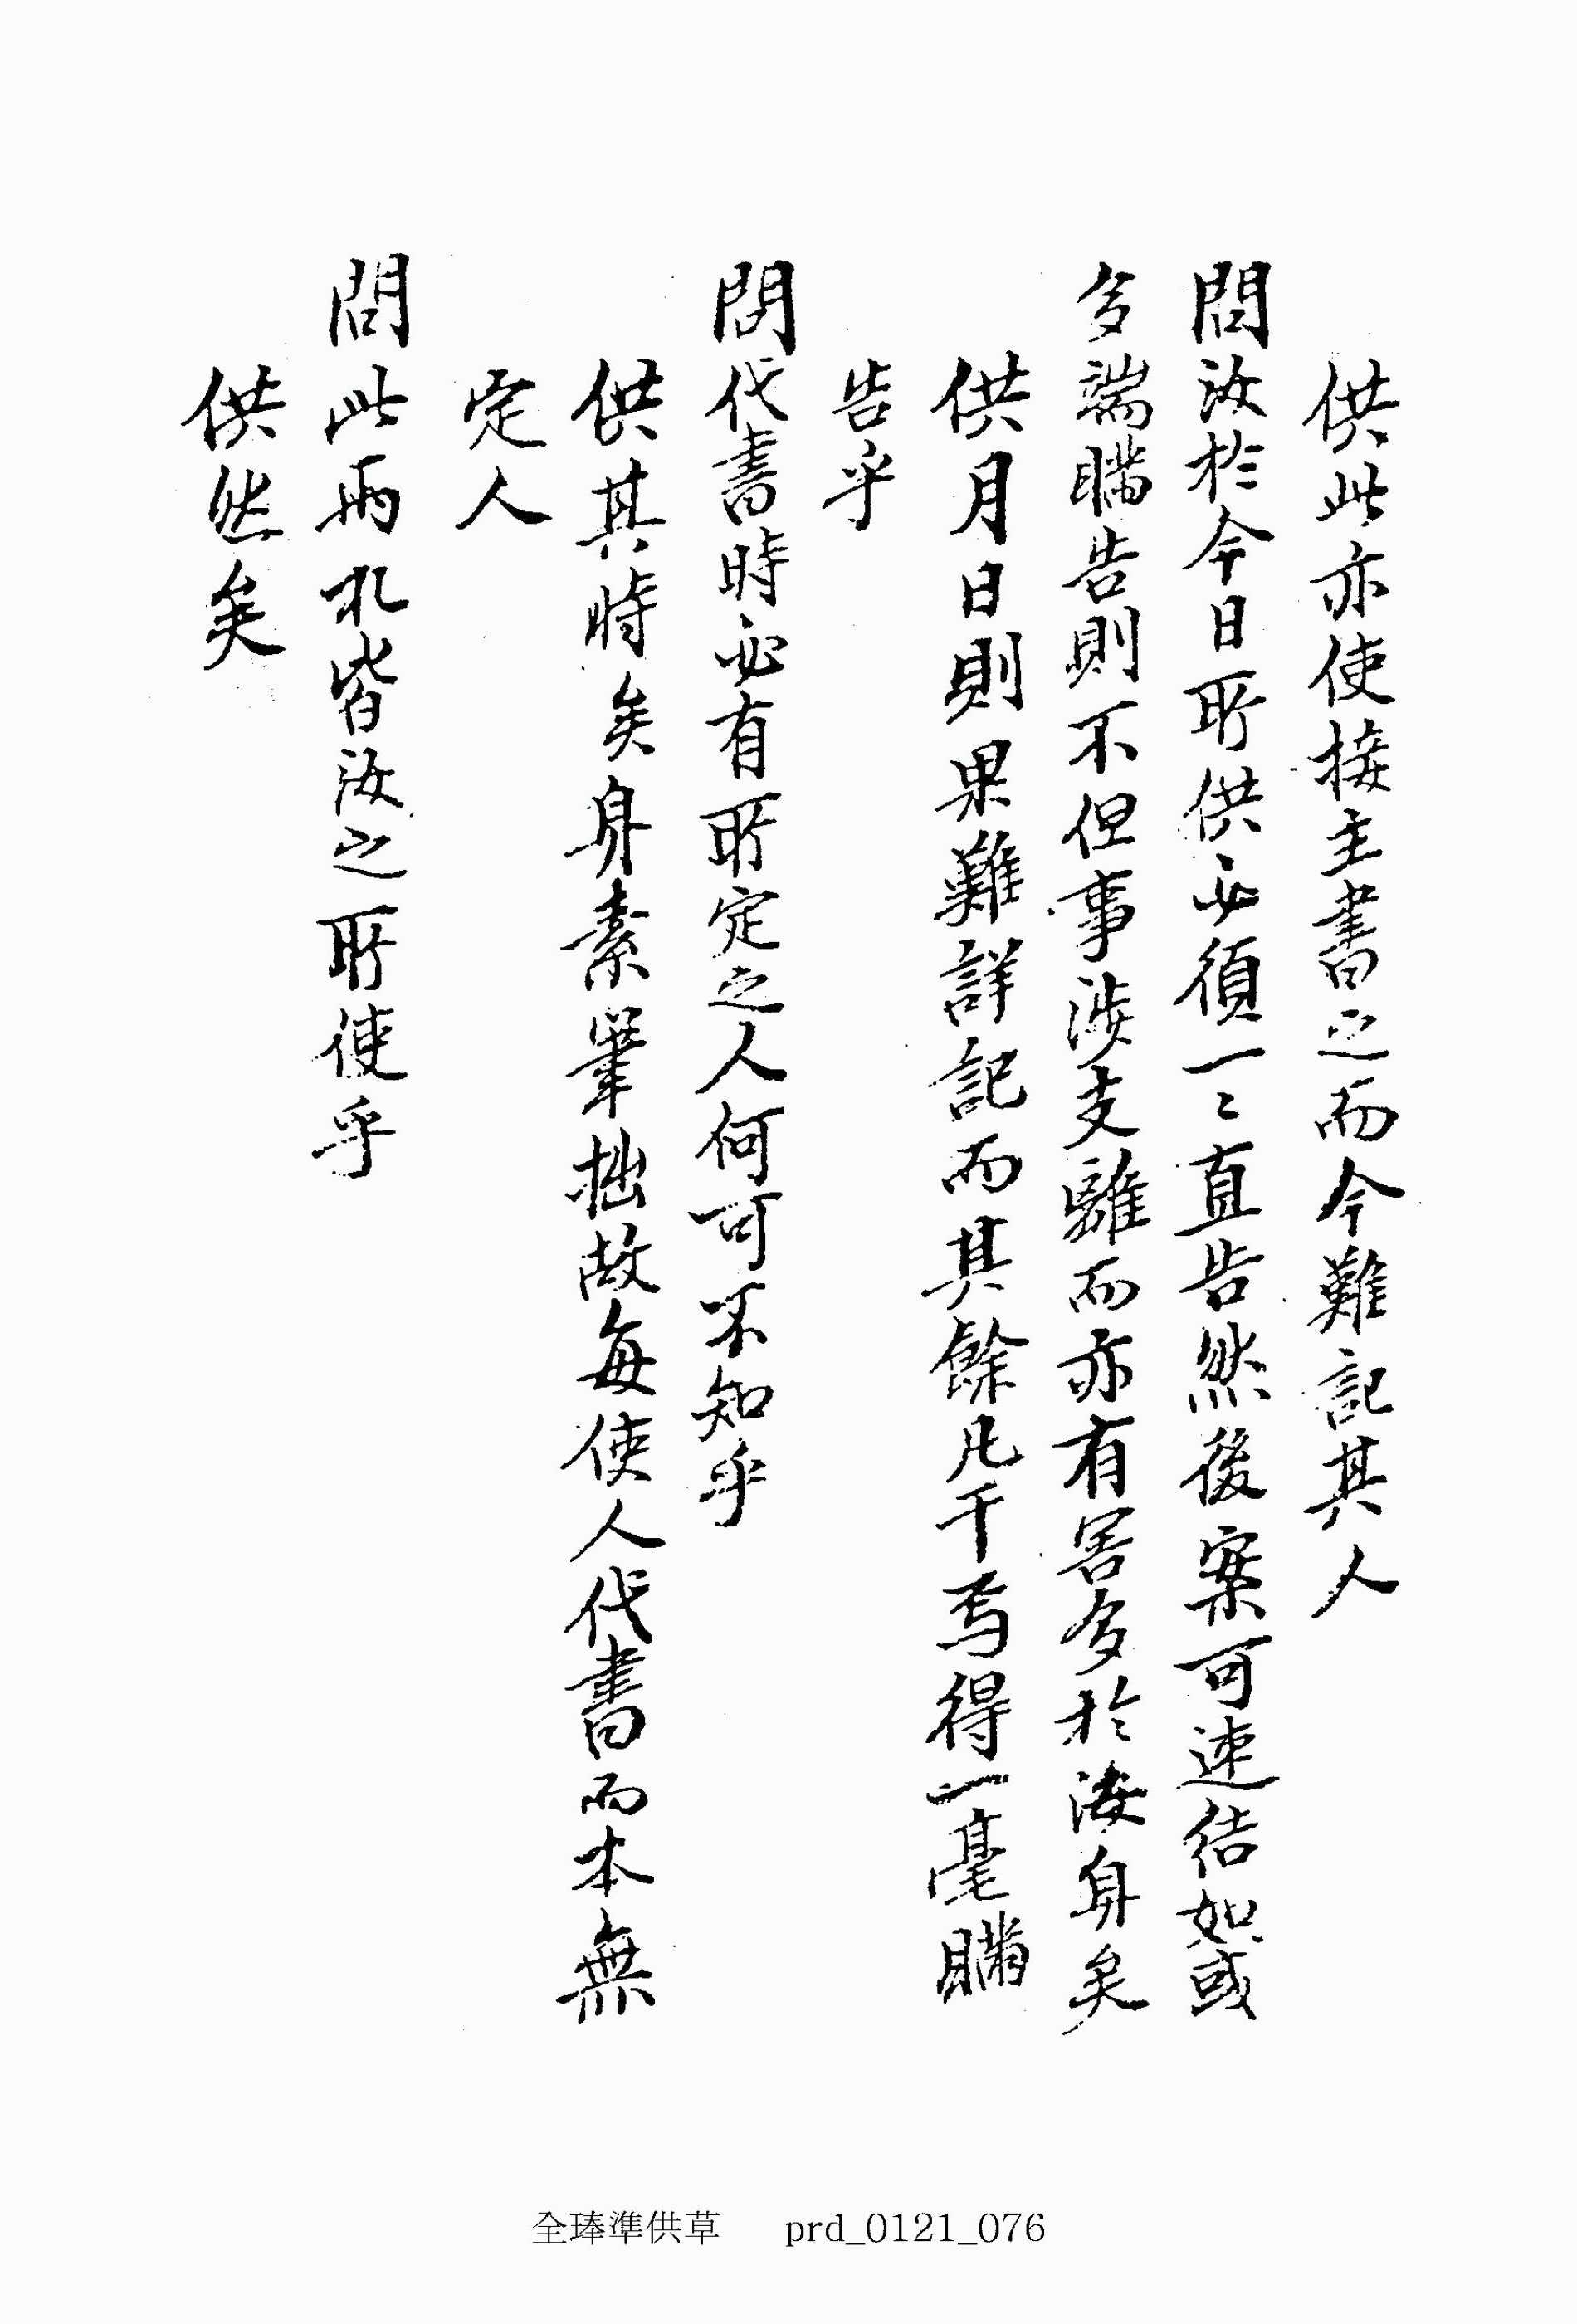 供此亦使接主書之而今難記其人
問汝於今日所供必須一〻直告然後案可速結如或
多端瞞告則不但事涉支離而亦有害多於汝身矣
供月日則果難詳記而其餘凡干焉得一毫瞞
告乎
問代書時必有所定之人何可不知乎
供其時矣身素筆拙故每使人代書而本無
定人
問此兩札皆汝之所使乎
供然矣
全琫準供草 prd_0121_076